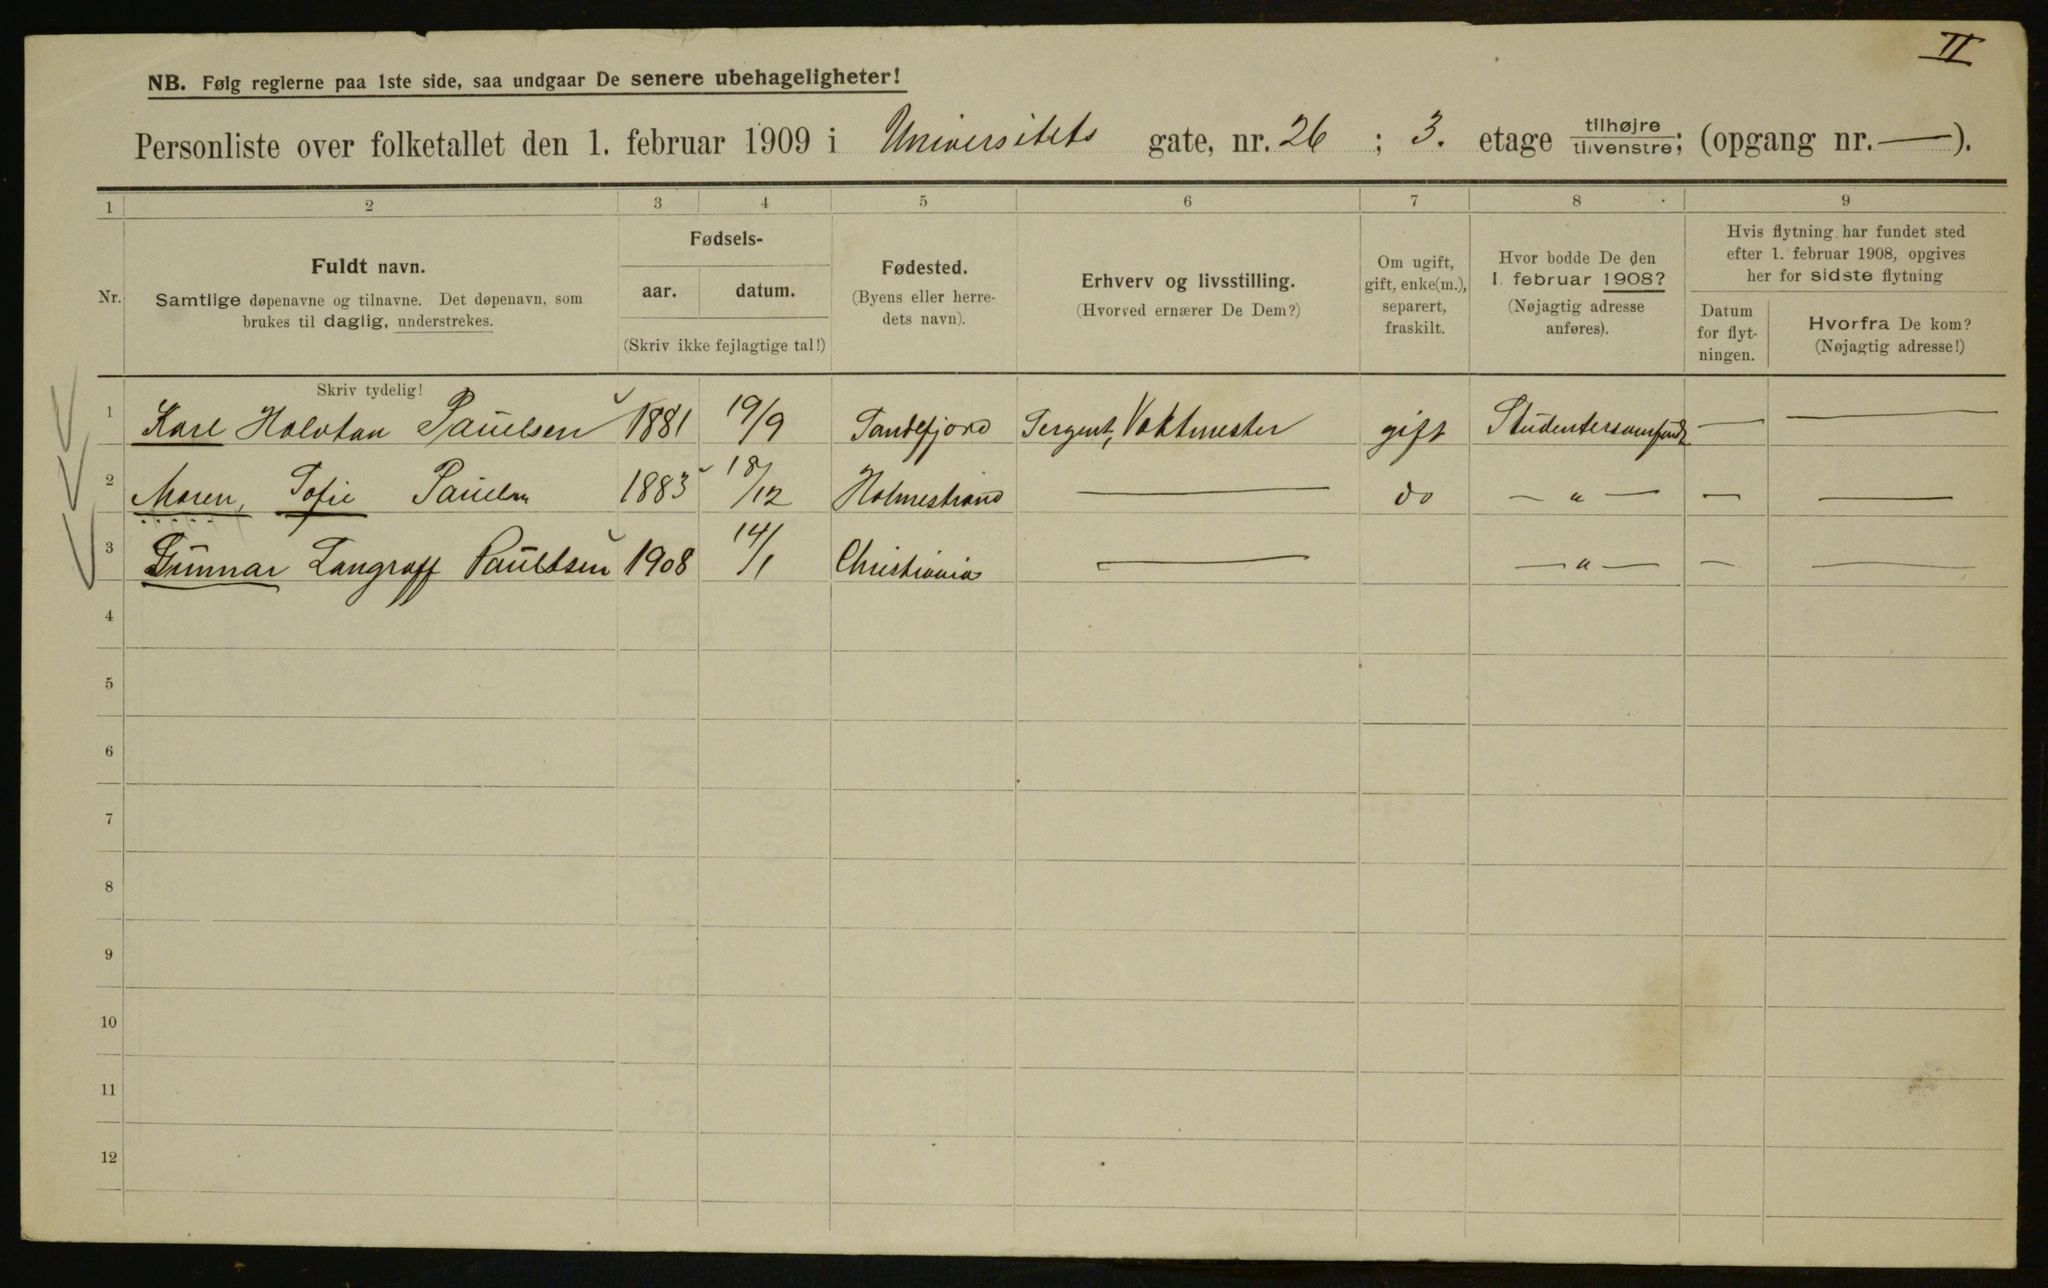 II
NB. Følg reglerne paa 1ste side, saa undgaar De senere ubehageligheter!
Personliste over folketallet den 1. februar 1909 i Universitets gate, nr. 26 ; 3. etage tilhøjre tilvenstre; (opgang nr. — ).
1 2 3 4 5 6 7 8 9
Nr.
Fuldt navn.
Samtlige døpenavne og tilnavne. Det døpenavn, som
brukes til daglig, understrekes.
Fødsels-
aar. datum.
(Skriv ikke fejlagtige tal!)
Fødested.
(Byens eller herre-
dets navn).
Erhverv og livsstilling.
(Hvorved ernærer De Dem?)
Om ugift,
gift, enke(m.),
separert,
fraskilt.
Hvor bodde De den
1. februar 1908?
(Nøjagtig adresse
anføres).
Hvis flytning har fundet sted
efter 1. februar 1908, opgives
her for sidste flytning
Datum
for flyt-
ningen.
Hvorfra De kom?
(Nøjagtig adresse!)
Skriv tydelig!
1 Karl Halvtan Paulsen 1881 19/9 Sandefjord Sergent, Vaktmester gift Studentersamfundt — —
2 Maren, Sofie Paulsen 1883 18/12 Holmestrand — do — " — — —
3 Gunnar Langraff Paulsen 1908 14/1 Christiania — — " — — —
4
5
6
7
8
9
10
11
12